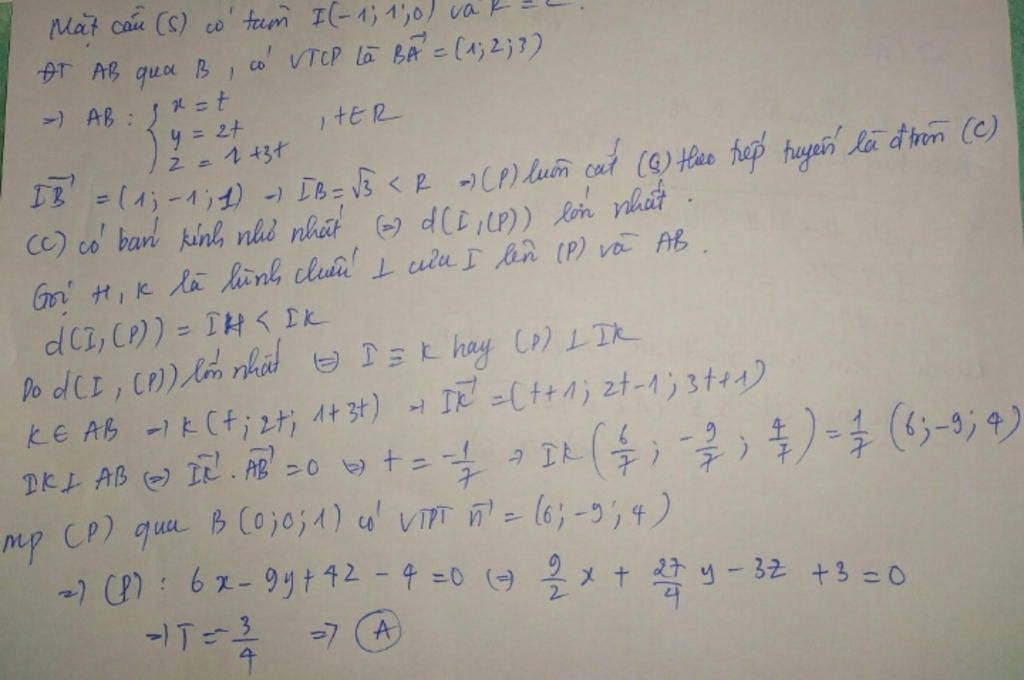 Mặt cầu (S) có tâm I(-1; 1; 0) và R = 2.
ĐT AB qua B, có VTCP là BA→ = (1; 2; 3)
=> AB : { x = t
y = 2t , t ∈ R
z = 1 + 3t
IB→ = (1; -1; 1) → IB = √3 < R => (P) luôn cắt (S) theo tiếp tuyến là đtròn (C)
(C) có bán kính nhỏ nhất <=> d(I, (P)) lớn nhất.
Gọi H, K là hình chiếu ⊥ của I lên (P) và AB.
d(I, (P)) = IH < IK
Do d(I, (P)) lớn nhất <=> I ≡ K hay (P) ⊥ IK
K ∈ AB → K(t; 2t; 1+3t) → IK→ = (t+1; 2t-1; 3t+1)
IK ⊥ AB <=> IK→ . AB→ = 0 <=> t = -1/7 → IK (6/7; -9/7; 4/7) = 1/7 (6; -9; 4)
mp (P) qua B(0; 0; 1) có VTPT n→ = (6; -9; 4)
=> (P) : 6x - 9y + 4z - 4 = 0 <=> 9/2 x + 27/4 y - 3z + 3 = 0
=> T = -3/4 => A